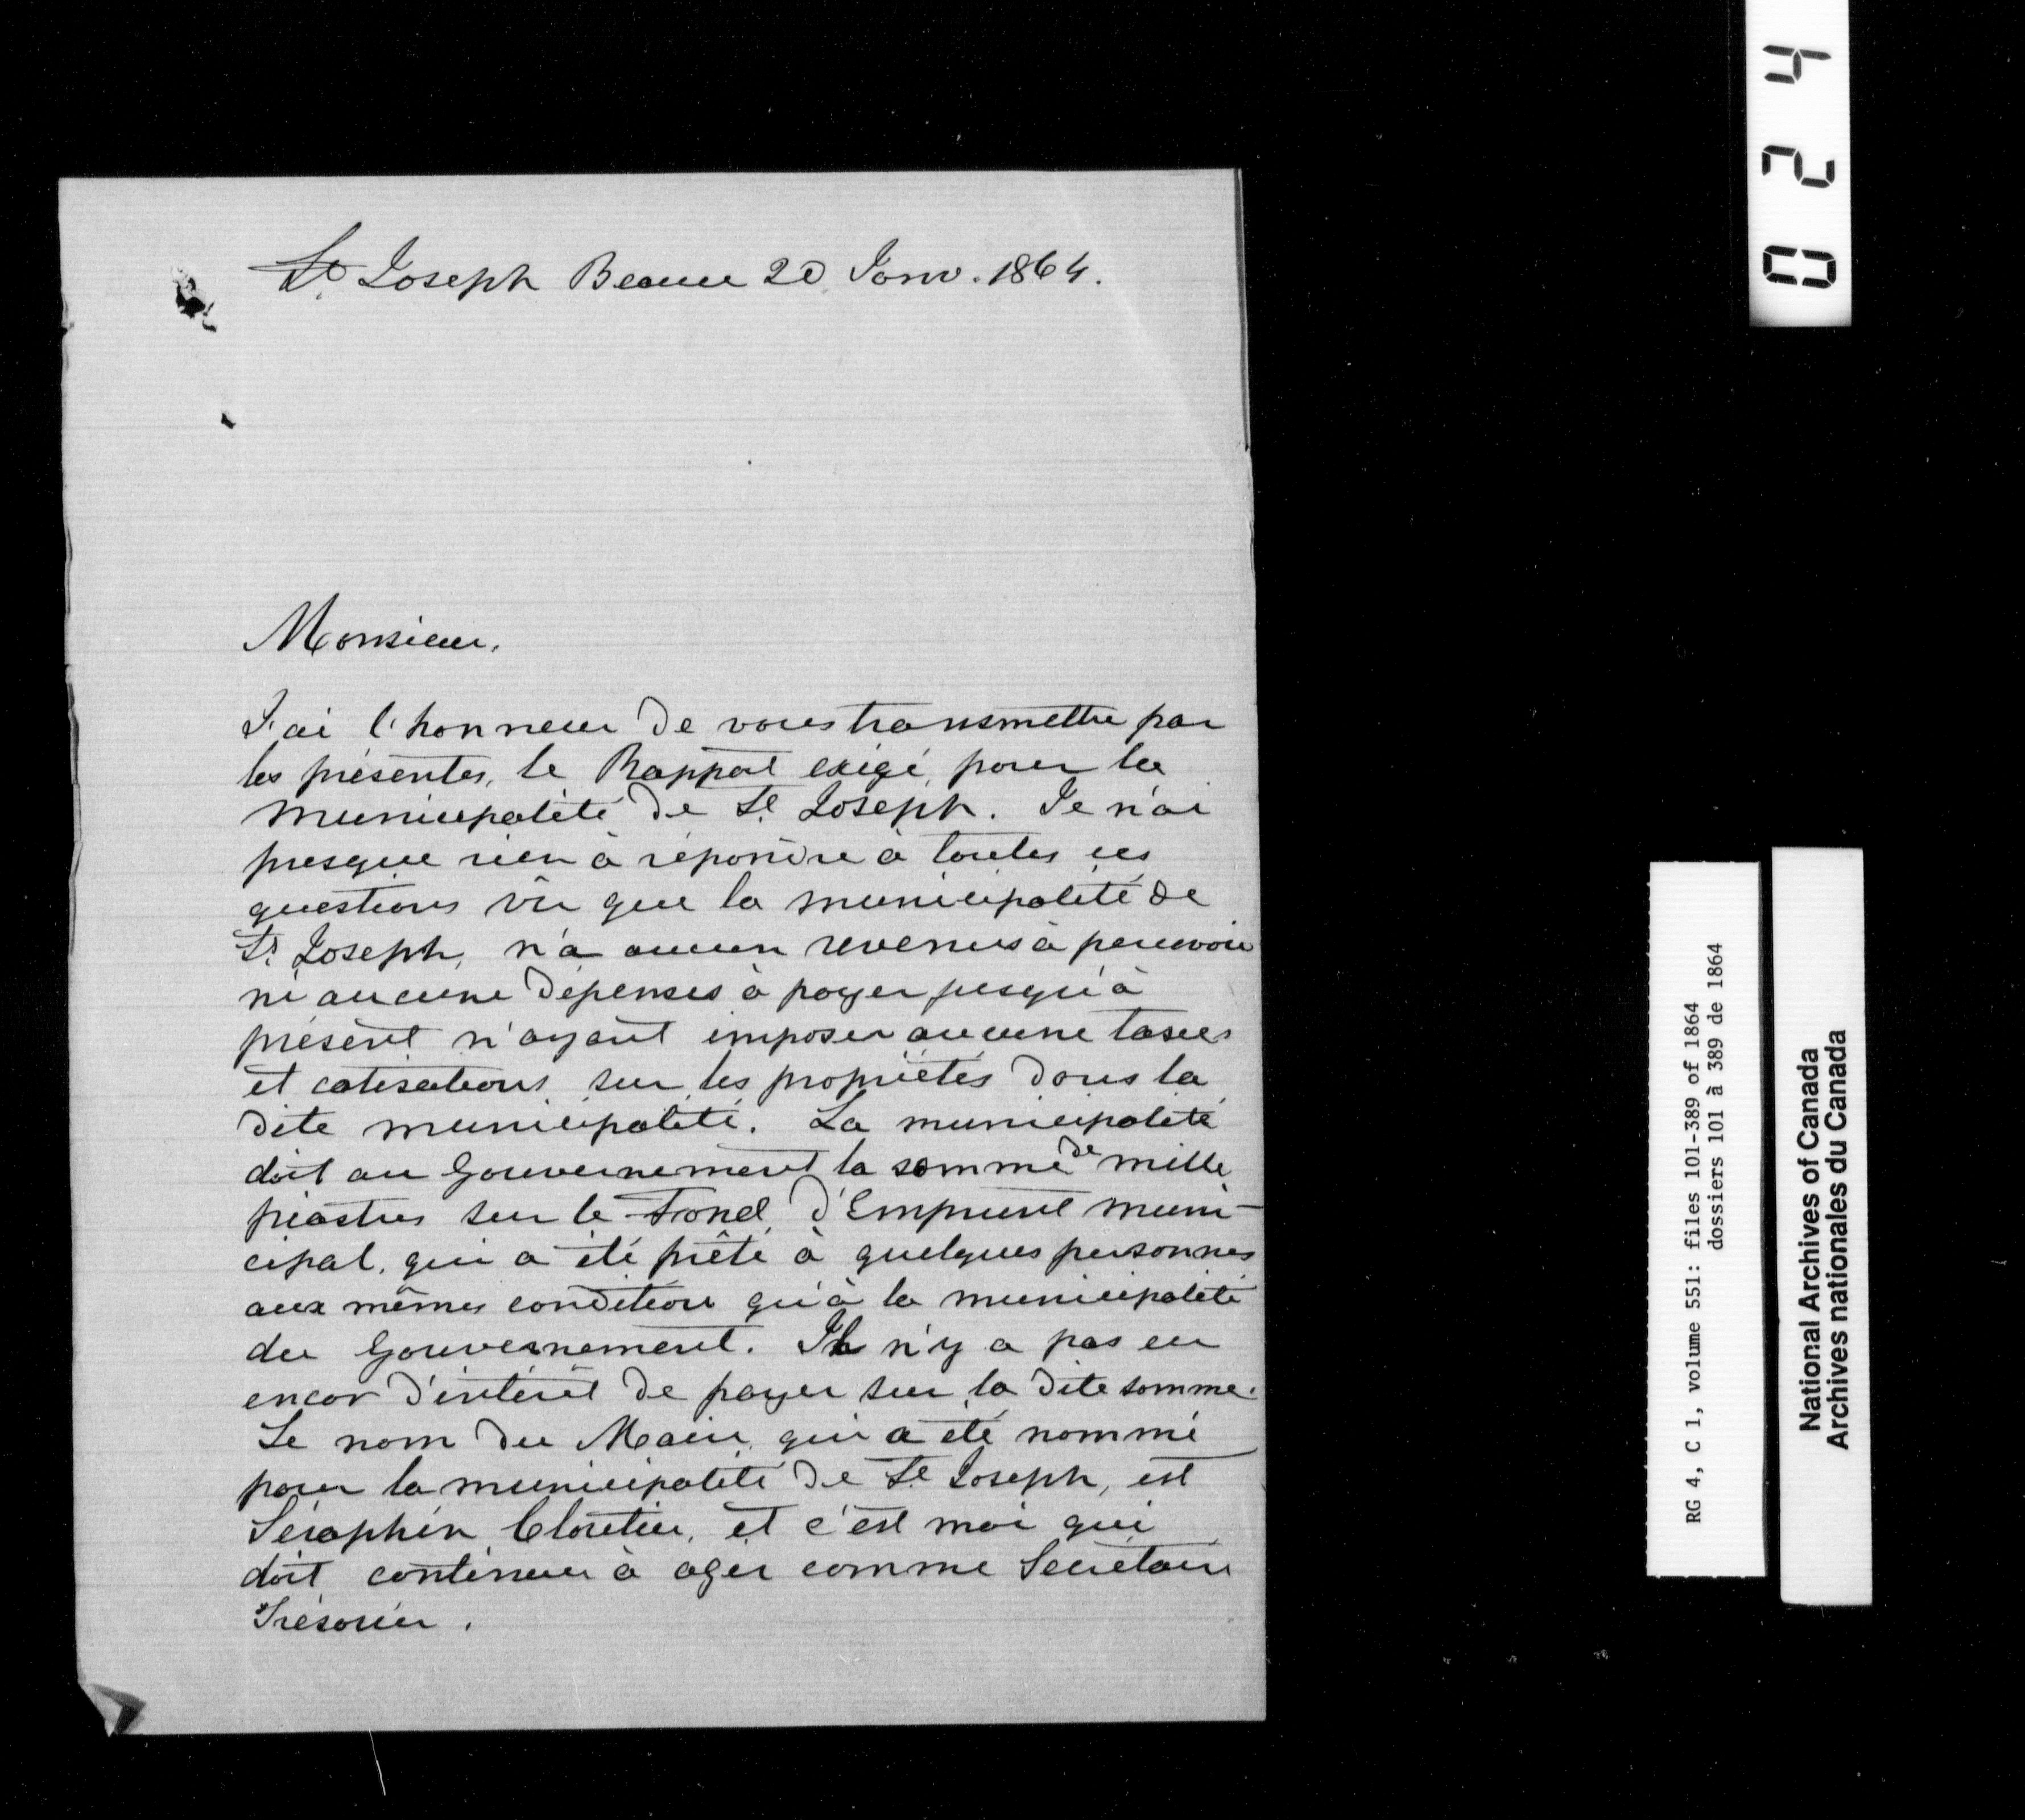 St Joseph Beauce 20 Janv. 1864.
Monsieur,
J'ai l'honneur de vous transmettre par
les présentes, le Rapport exigé, pour la
municipalité de St Joseph. Je n'ai
presque rien à répondre à toutes ces
questions vû que la municipalité de
St Joseph, n'a aucun revenus à percevoir
ni aucune dépenses à payer jusqu'à
présent n'ayant imposer aucune taxes
et cotisations sur les propriétés dans la
dite municipalité. La municipalité
doit au Gouvernement la somme de mille
piastres sur le Fond d'Emprunt muni-
cipal, qui a été prêté à quelques personnes
aux mêmes condition qu'à la municipalité
du Gouvernement. Il n'y a pas eu
encor d'intérêt de payer sur la dite somme.
Le nom du Maire, qui a été nommé
pour la municipalité de St Joseph, est
Séraphin Cloutier, et c'est moi qui
doit continuer à agir comme Secrétaire
Trésorier.
024
RG 4, C 1, volume 551: files 101-389 of 1864
dossiers 101 à 389 de 1864
National Archives of Canada
Archives nationales du Canada